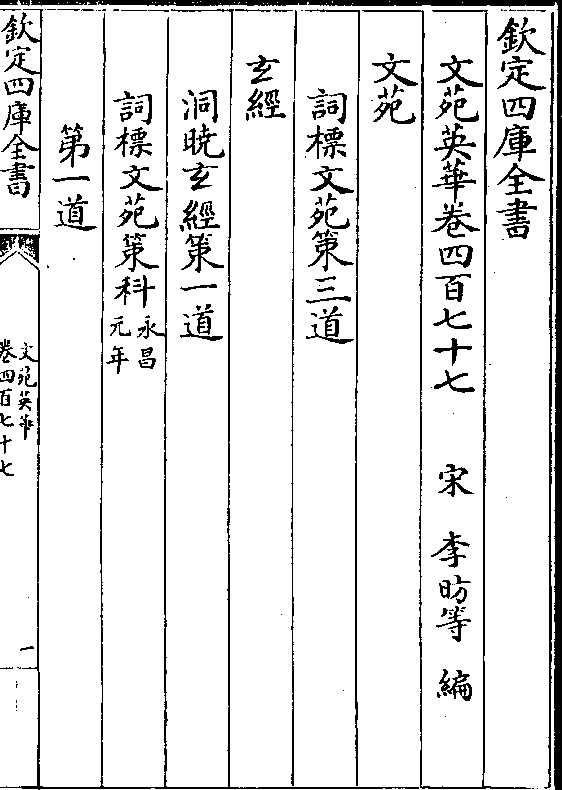 欽定四庫全書
文苑英華卷四百七十七 宋 李昉等 編
文苑
詞標文苑策三道
玄經
洞曉玄經策一道
詞標文苑策科永昌元年
第一道
欽定四庫全書
文苑英華
卷四百七十七
一